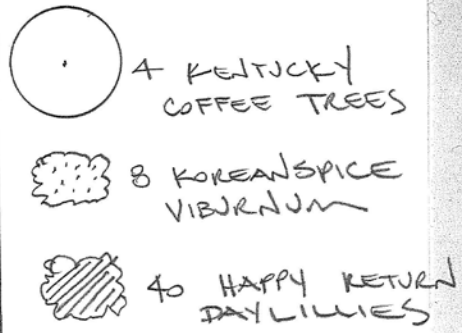 4 KENTUCKY
COFFEE TREES
8 KOREANSPICE
VIBURNUM
40 HAPPY RETURN
DAYLILLIES